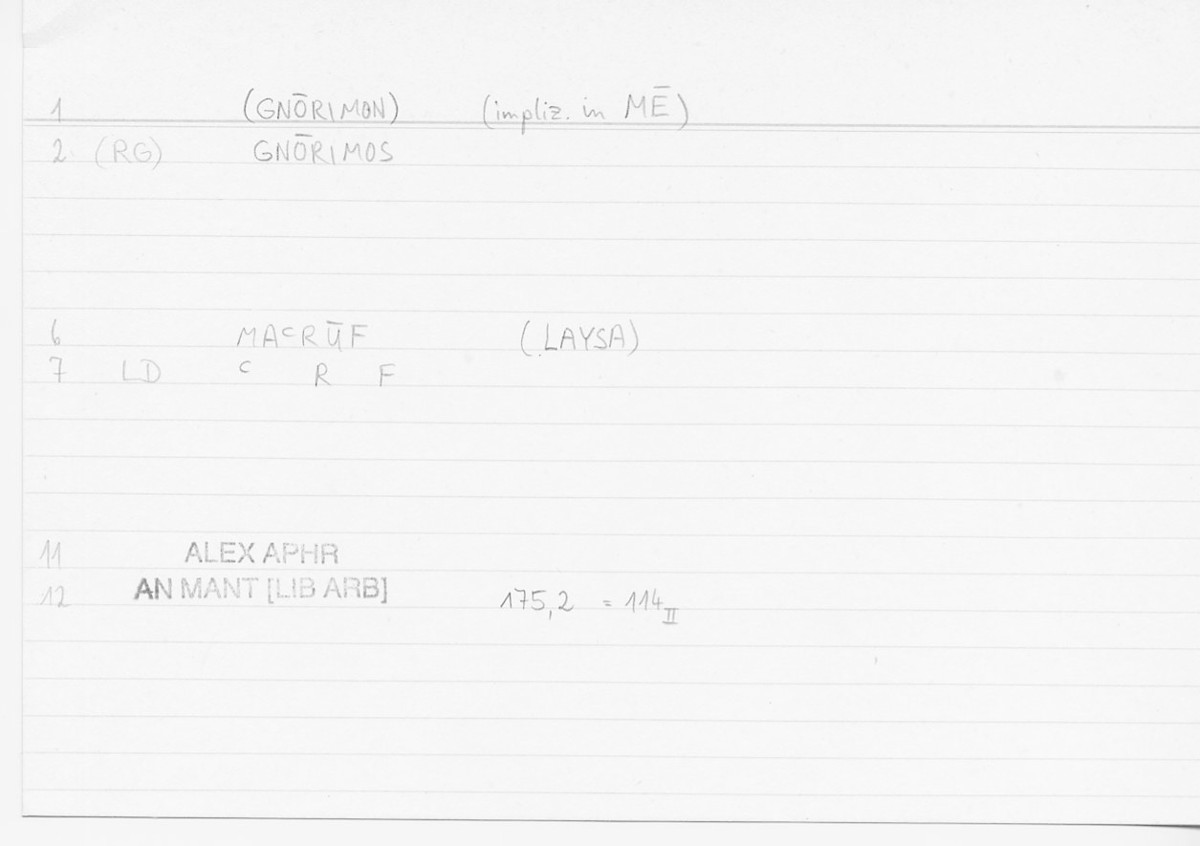 1 (GNŌRIMON) (impliz. in MĒ)
2 (RG) GNŌRIMOS
6 MAᶜRŪF (LAYSA)
7 LD ᶜ R F
11 ALEX APHR
12 AN MANT [LIB ARB] 175,2 = 114 II